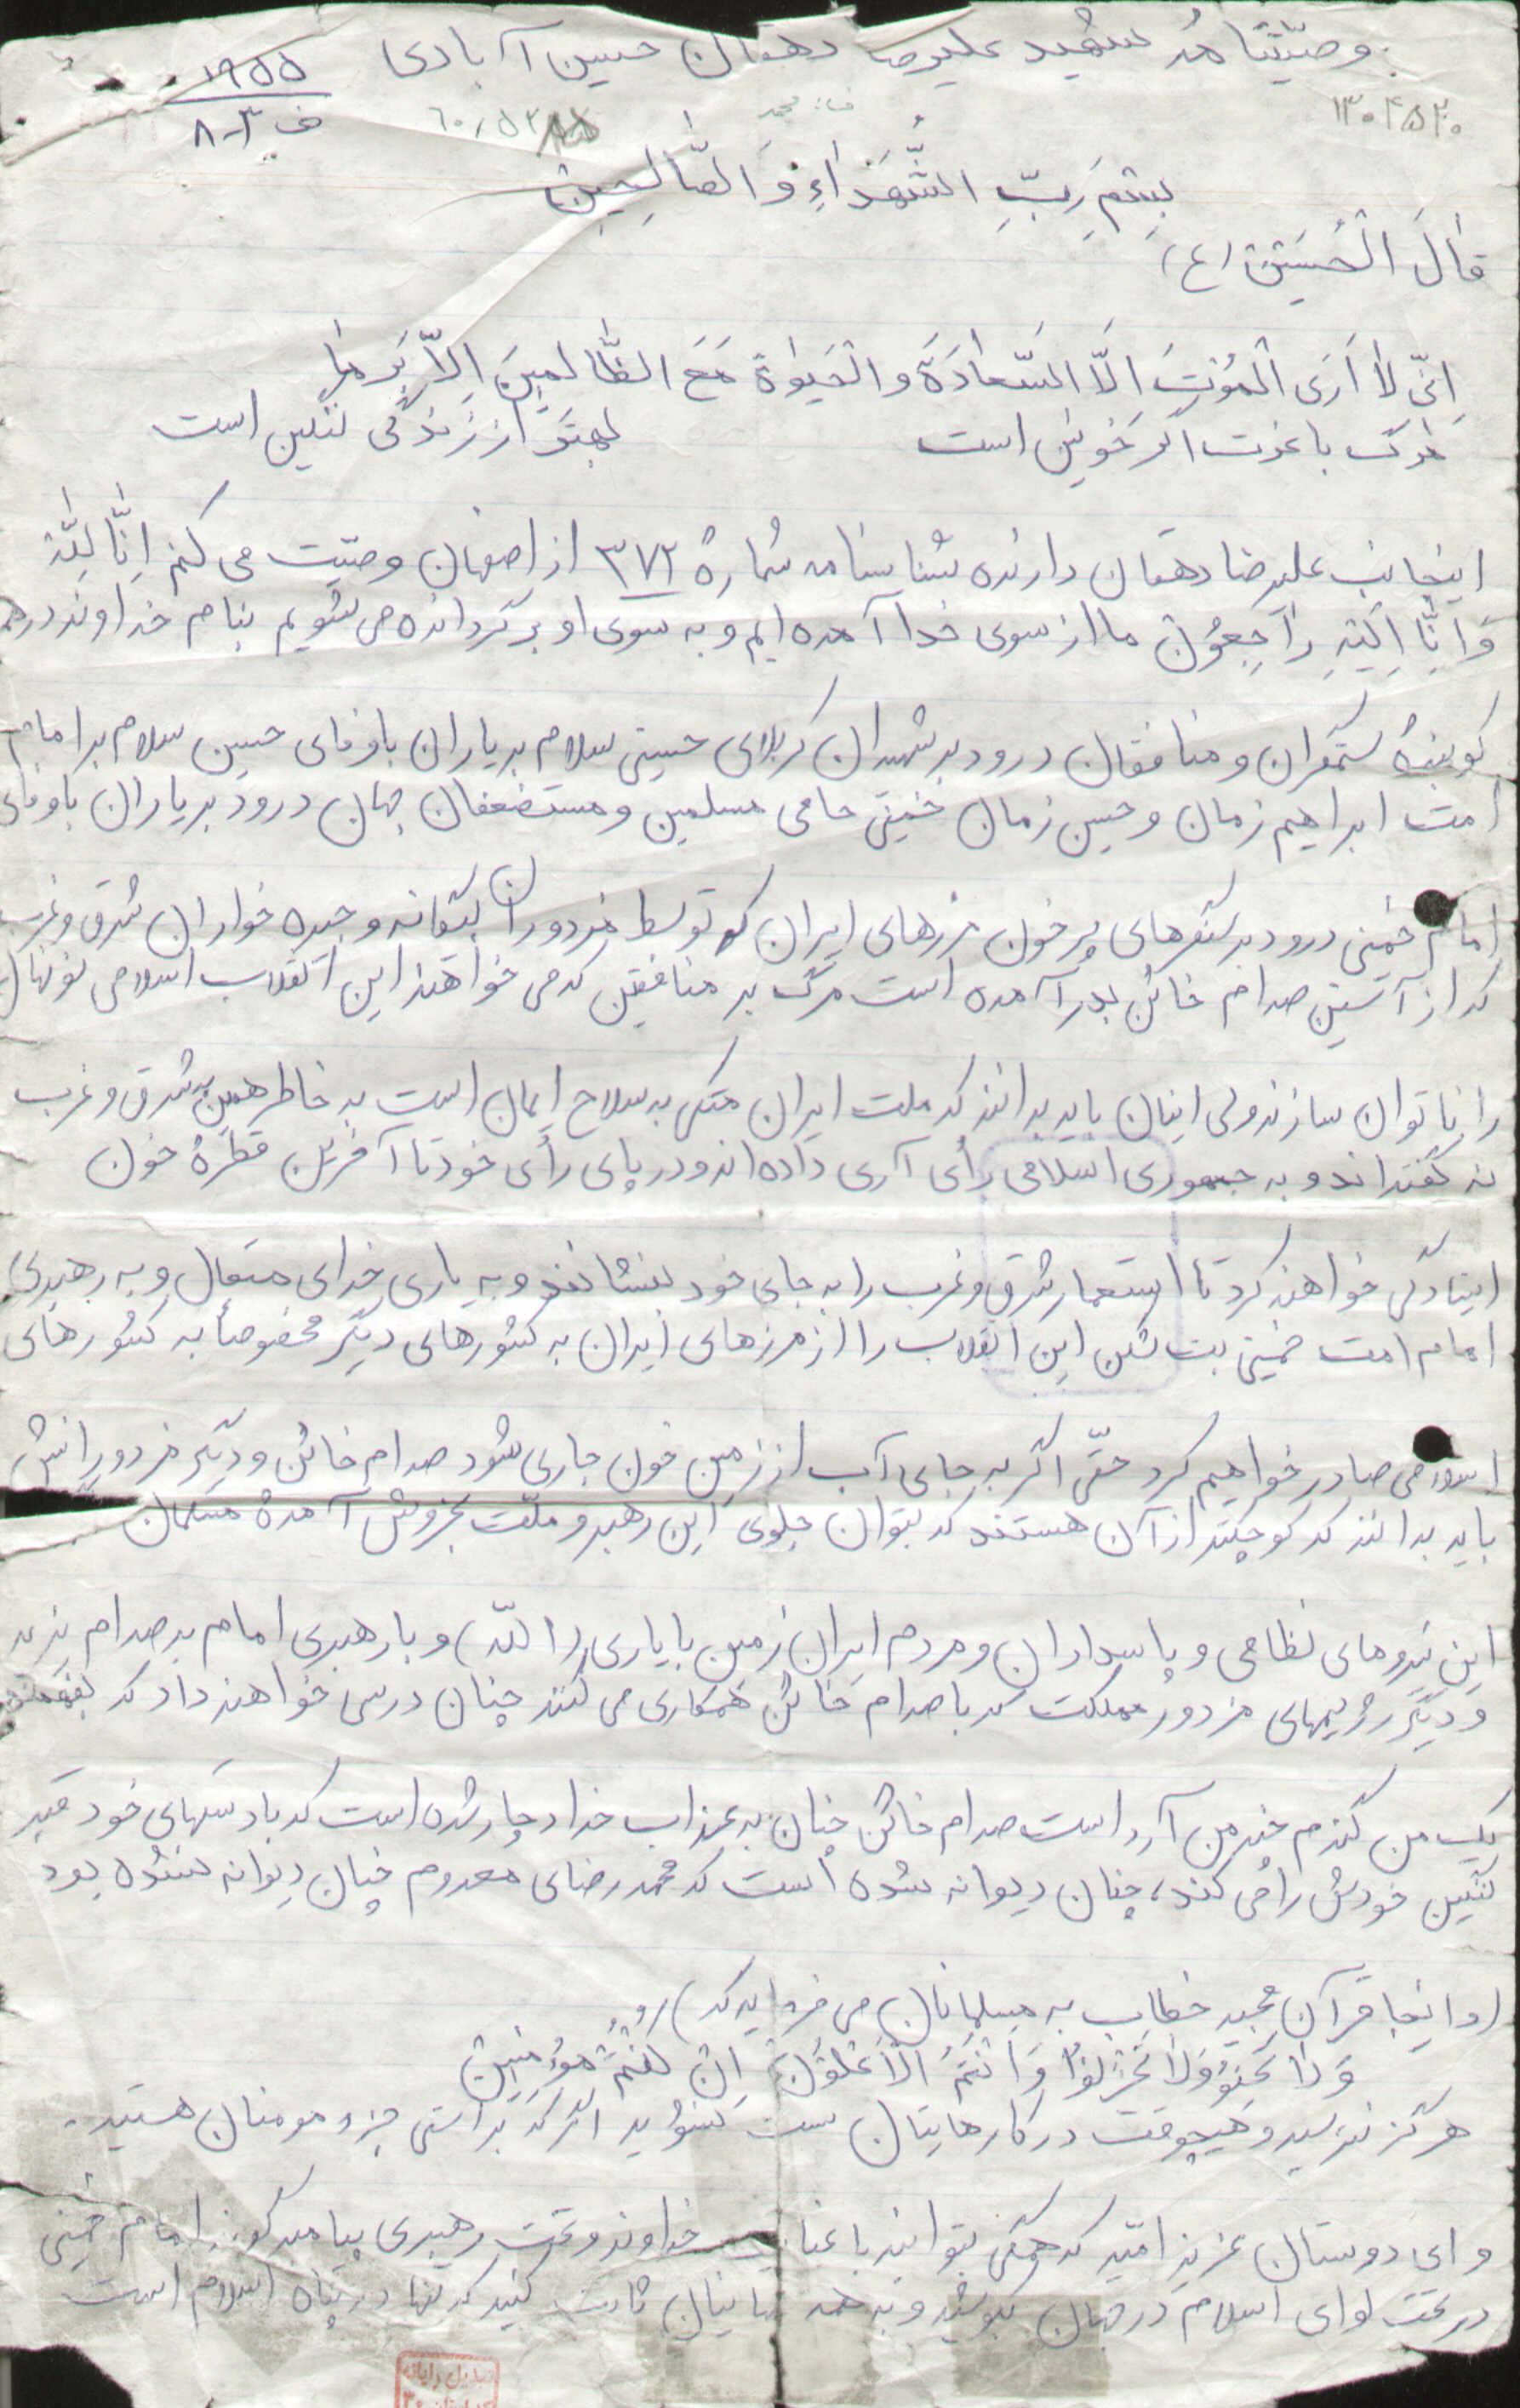 وصیّتنامه شهید علیرضا دهقان حسین آبادی
۱۸۵۵
ف ۸۰۳
۱۳۰۴۵۲۰
بِسْمِ رَبِّ الشُّهَدٰاءِ وَ الصّٰالِحِین
قٰالَ الْحُسَیْن (ع)
اِنّی لاٰ اَرَی الْمَوْتَ اِلاَّ السَّعادَةَ و الْحَیوٰةَ مَعَ الظّٰالِمینَ اِلاّٰ بَرَماٰ
مرگ با عزت اگر خونین است بهتر از زندگی ننگین است
اینجانب علیرضا دهقان دارنده شناسنامه شمارهٔ ۳۷۲ از اصفهان وصیّت می کنم اِنّٰا لِلّٰه
وَ اِنّٰا اِلَیْهِ رٰاجِعُونْ ما از سوی خدا آمده ایم و به سوی او برگردانده می شویم بنام خداوند درهم
کوبندهٔ ستمگران و منافقان درود بر شهیدان کربلای حسینی سلام بر یاران باوفای حسین سلام بر امام
امت ابراهیم زمان و حسین زمان خمینی حامی مسلمین و مستضعفان جهان درود بر یاران باوفای
امام خمینی درود بر سنگرهای پرخون مرزهای ایران که توسط مزدوران بیگانه و جیره خواران شرق و غرب
که از آستین صدام خائن بدر آمده است مرگ بر منافقین که می خواهند این انقلاب اسلامی نونهال
را ناتوان سازند ولی اینان باید بدانند که ملت ایران متکی به سلاح ایمان است به خاطر همین به شرق و غرب
نه گفته اند و به جمهوری اسلامی رأی آری داده اند و در پای رأی خود تا آخرین قطرهٔ خون
ایستادگی خواهند کرد تا استعمار شرق و غرب را به جای خود بنشانند و به یاری خدای متعال و به رهبری
امام امت خمینی بت شکن این انقلاب را از مرزهای ایران به کشورهای دیگر مخصوصاً به کشورهای
اسلامی صادر خواهیم کرد حتّی اگر به جای آب از زمین خون جاری شود صدام خائن و دیگر مزدورانش
باید بدانند که کوچکتر از آن هستند که بتوان جلوی این رهبر و ملّت بخروش آمدهٔ مسلمان
این نیروهای نظامی و پاسداران و مردم ایران زمین با یاری (الله) و با رهبری امام بر صدام یزید
و دیگر رژیمهای مزدور مملکت که با صدام خائن همکاری می کنند چنان درسی خواهند داد که بفهمند
یک من گندم چند من آرد است صدام خائن چنان به عذاب خدا دچار شده است که با دستهای خود قبر
ننگین خودش را می کند، چنان دیوانه شده است که محمد رضای معدوم چنان دیوانه نشده بود
(و اینجا قرآن مجید خطاب به مسلمانان می فرماید که)
وَ لاٰ تَهِنُوا وَ لاٰ تَحْزَنُوا وَ اَنْتُمُ الْاَعْلَوْنَ اِنْ کُنْتُمْ مُؤْمِنینْ
هرگز نترسید و هیچوقت در کارهایتان سست نشوید اگر که براستی جزو مومنان هستید.
و ای دوستان عزیز امّید که همگی بتوانید با خداوند و تحت رهبری پیامبرگونه امام خمینی
در تحت لوای اسلام در جهان بکوشید و به همه ثابت کنید که تنها در پناه اسلام است